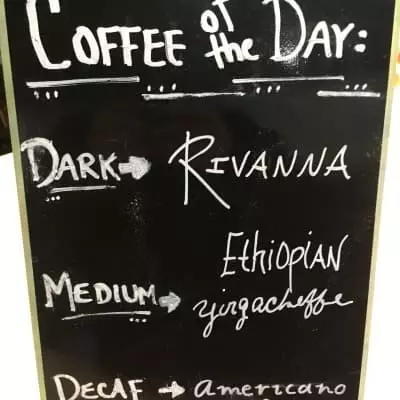 COFFEE of the DAY:
DARK → RIVANNA
Ethiopian
MEDIUM → yirgacheffe
DECAF → americano